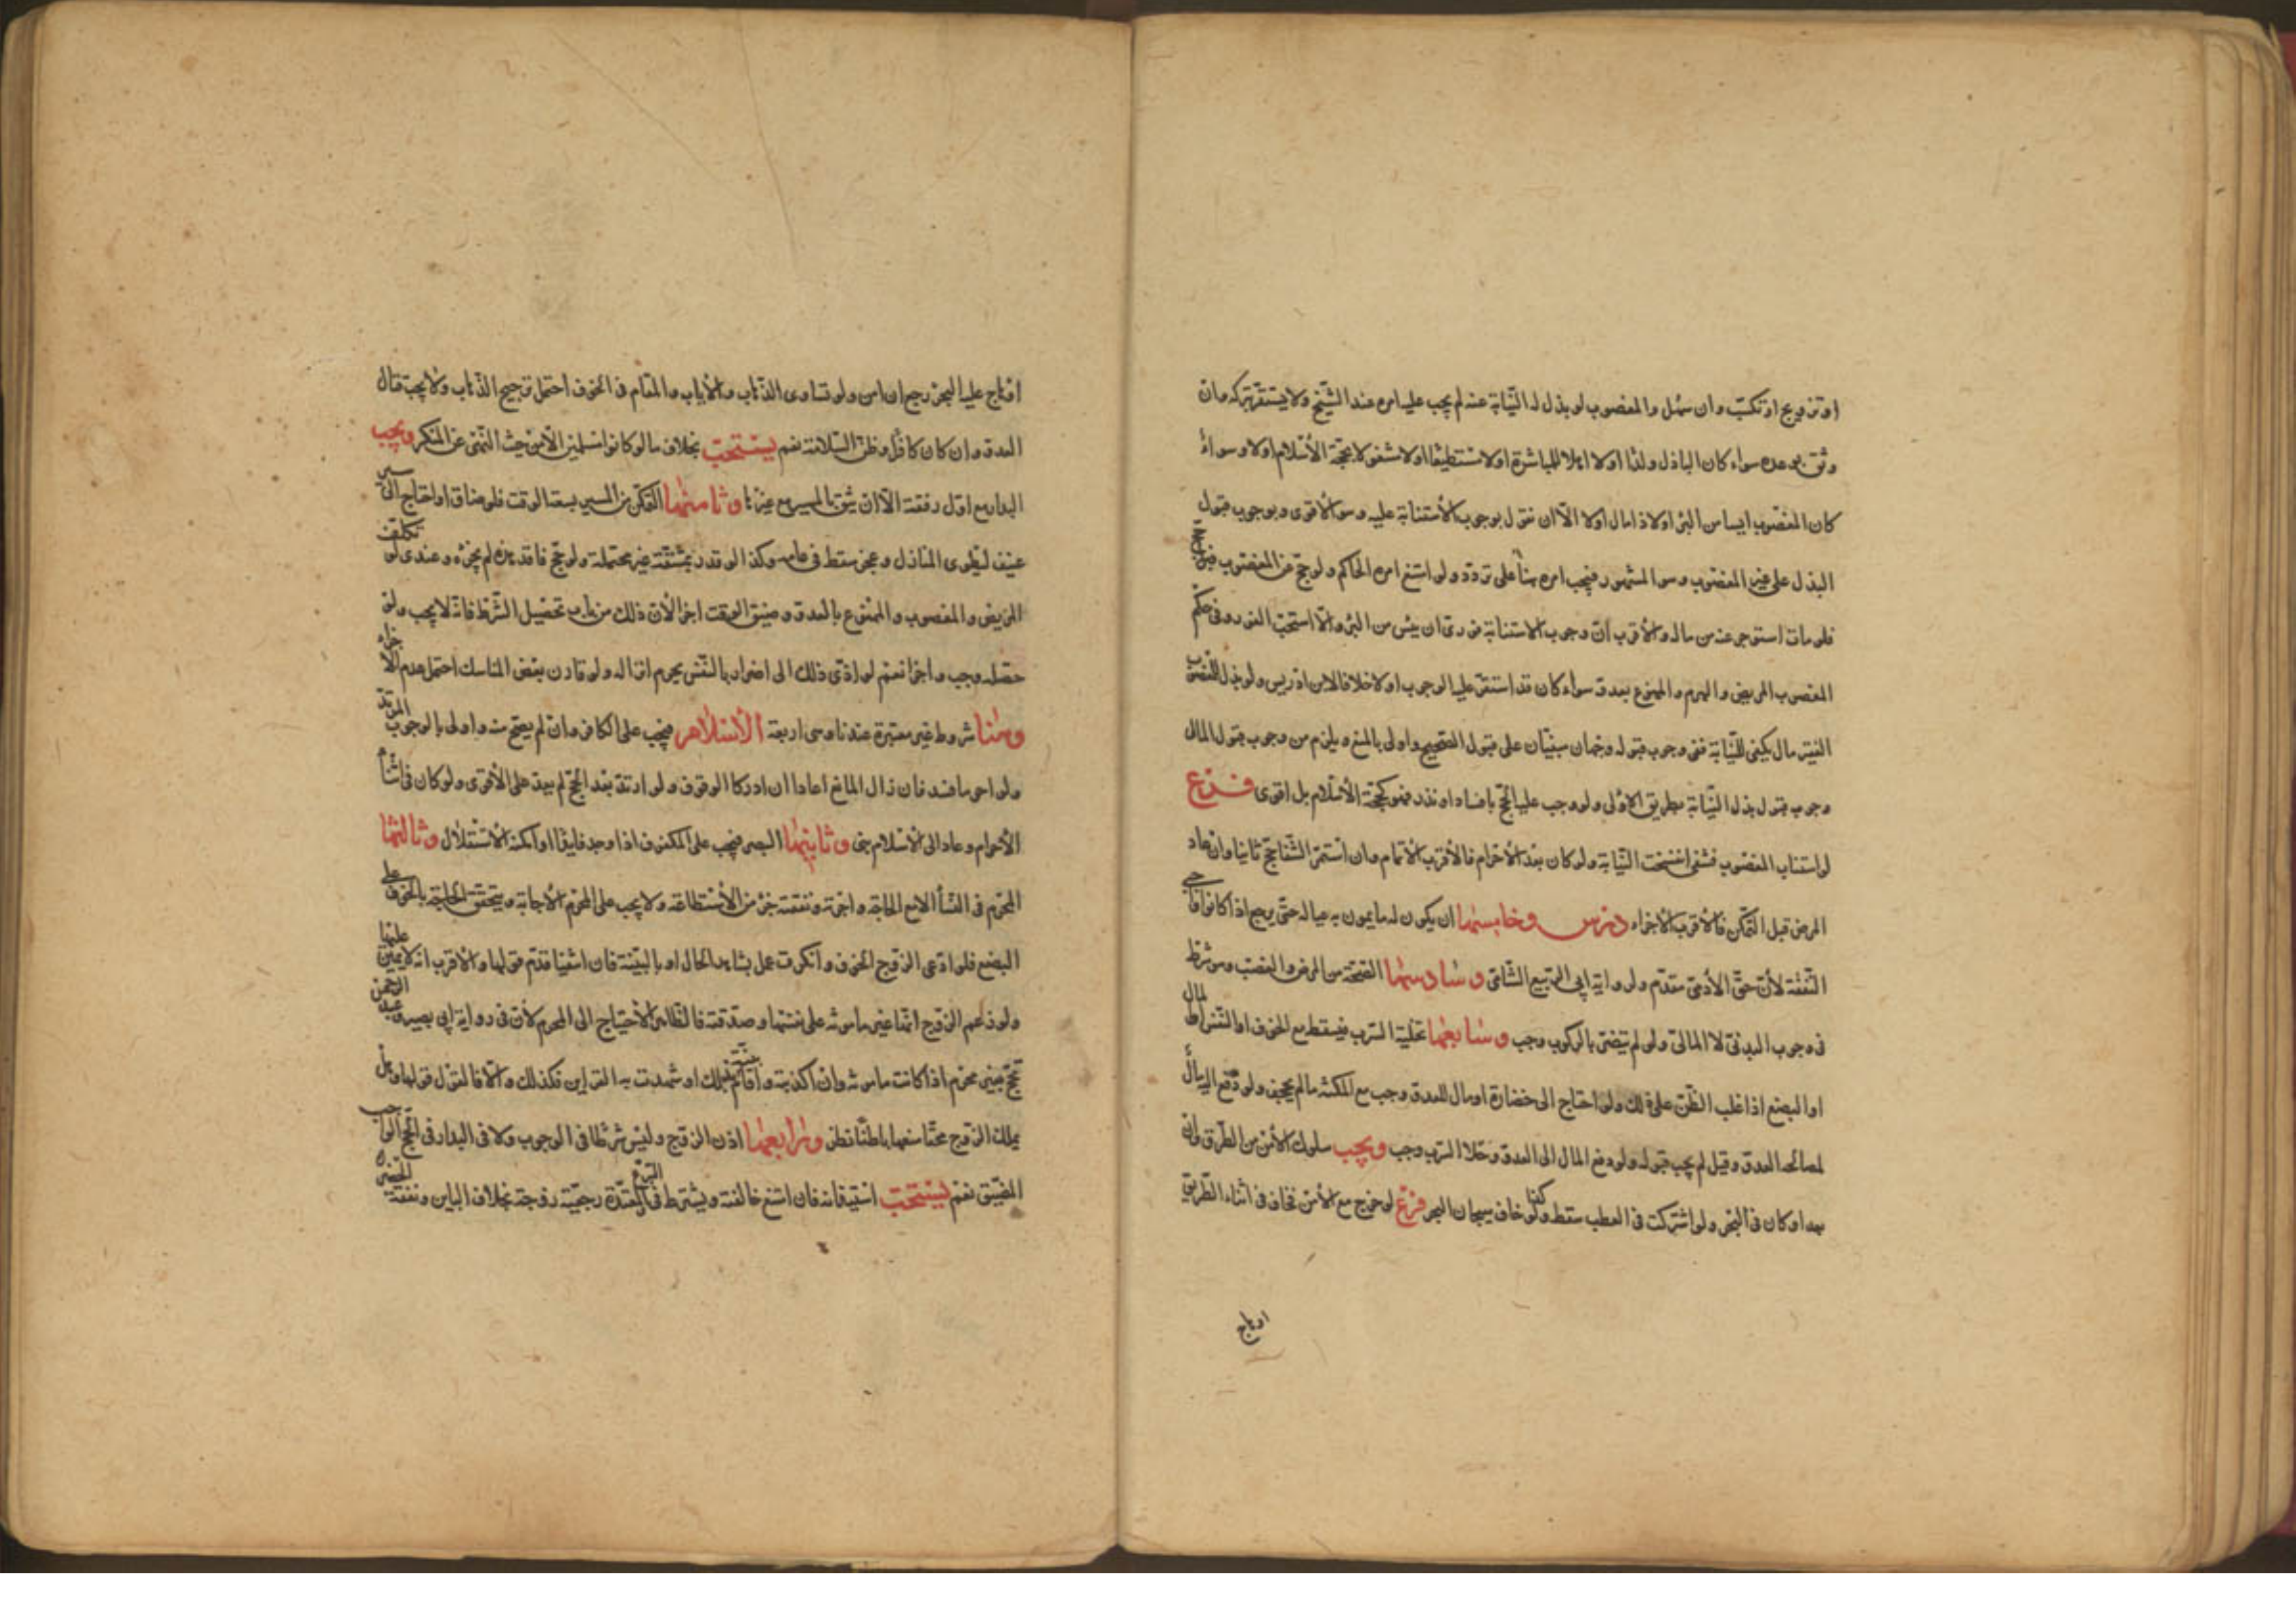 او تزويج او تكسّب وان سهل والمعضوب لو بذل له النيابة عنه لم يجب عليه امره عند الشيخ ولا يستقر بتركه وان
وثق بوعده سواء كان الباذل ولدًا اولا اهلا للمباشرة اولا مستطيعًا اولا مشغولا بحجة الأسلام اولا وسواء
كان المعضوب ايسا من البرء اولا ذا مال اولا الا ان نقول بوجوب الأستنابة عليه وهو الأقوى وبوجوب قبول
البذل على غير المعضوب وهو المشهور فيجب امره بناً على تردد ولو امتنع امره الحاكم ولو حج عن المعضوب
فلو مات استوجر عنه من ماله والأقرب ان وجوب الاستنابة فورى ان يئس من البرء والا استحب الفور وفى حكم
المعضوب المريض والهرم والممنوع بعدو سواء كان قد استقر عليه الوجوب اولا خلافا لابن ادريس ولو بذل للمعضوب
الفقير مال يكفى للنيابة ففى وجوب قبوله وجهان مبنيان على قبول الصحيح واولى بالمنع ويلزم من وجوب قبول المال
وجوب قبول بذل النيابة بطريق الاولى ولو وجب عليه الحج بافساد او نذر فهو كحجة الأسلام بل اقوى فرع
لو استناب المعضوب فشفى انفسخت النيابة ولو كان بعد الأحرام فالأقرب الأتمام وان استمر الشفا حج ثانيا وان عاد
المرض قبل التمكن فالأقرب الأجزاء درس وخامسها ان يكون له ما يمون به عياله حتى يرجع اذا كانوا واجبى
النفقة لأن حق الأدمى مقدم ولرواية ابى الربيع الشامى وسادسها الصحة من المرض والعضب وهو شرط
فى وجوب البدنى لا المالى ولو لم يتضرر بالركوب وجب وسابعها تخلية السرب فيسقط مع الخوف على النفس او المال
او البضع اذا غلب الظن على ذلك ولو احتاج الى خفارة او مال للعدو وجب مع المكنة ما لم يجحف ولو دفع اليه مال
لمصالحة العدو قيل لم يجب قبوله ولو دفع المال الى العدو وخلا السرب وجب ويجب سلوك الأمن من الطرق وان
بعد او كان فى البحر ولو اشتركت فى العطب سقط وكذا لو خاف هيجان البحر فرع لو خرج مع الأمن فخاف فى اثناء الطريق
او هاج
او هاج عليه البحر رجع ان امن ولو تساوى الذهاب والأياب والمقام فى الخوف احتمل ترجيح الذهاب ولا يجب قتال
العدو وان كان كافرًا وظن السلامة نعم يستحب بخلاف ما لو كانوا مسلمين الا من حيث النهى عن المنكر ويجب
البدار مع اول رفقة الا ان يثق بالمسير مع غيرها وثامنها التمكن من المسير بسعة الوقت فلو ضاق او احتاج الى سير
عنيف لطوى المنازل وعجز سقط فى عامه وكذا لو قدر بمشقة غير محتملة ولو حج فاقد هذه لم يجزه وعندى لو تكلف
المريض والمعضوب والممنوع بالعدو وضيق الوقت اجزا لأن ذلك من باب تحصيل الشرط فانه لا يجب ولو
حصله وجب واجزا نعم لو ادى ذلك الى اضرار بالنفس يحرم انزاله ولو قارن بعض المناسك احتمل عدم الأجزاء
وهنا شروط غير معتبرة عندنا وهى اربعة الأسلام فيجب على الكافر وان لم يصح منه واولى بالوجوب المرتد
ولو احرما فسد فان زال المانع اعادا ان ادركا الوقوف ولو ارتد بعد الحج لم يعد على الأقوى ولو كان فى اثناء
الأحرام وعاد الى الأسلام بنى وثانيها البصر فيجب على المكفوف اذا وجد قايدًا او امكنه الأستقلال وثالثها
المحرم فى النسأ الا مع الحاجة واجرته ونفقته جزء من الأستطاعة ولا يجب على المحرم الأجابة ويتحقق الحاجة بالخوف على
البضع فلو ادعى الزوج الخوف وانكرت عمل بشاهد الحال او بالبينة فان انتفيا قدم قولها والأقرب انه لا يمين عليها
ولو زعم الزوج انها غير مأمونة على نفسها وصدقته فالظاهر الأحتياج الى المحرم لأن فى رواية ابى بصير وعبد الرحمن
تحج بغير محرم اذا كانت مأمونة وان اكذبته واقام بينة بذلك او شهدت به القراين فكذلك والا فالقول قولها وهل
يملك الزوج محقًا منعها باطنًا نظر ورابعها اذن الزوج وليس شرطًا فى الوجوب ولا فى البدار فى الحج الواجب
المضيق نعم يستحب استيذانه فان امتنع خالفته ويشترط فى التبرع والمعتدة رجعية زوجة بخلاف الباين ونفقة الحضر